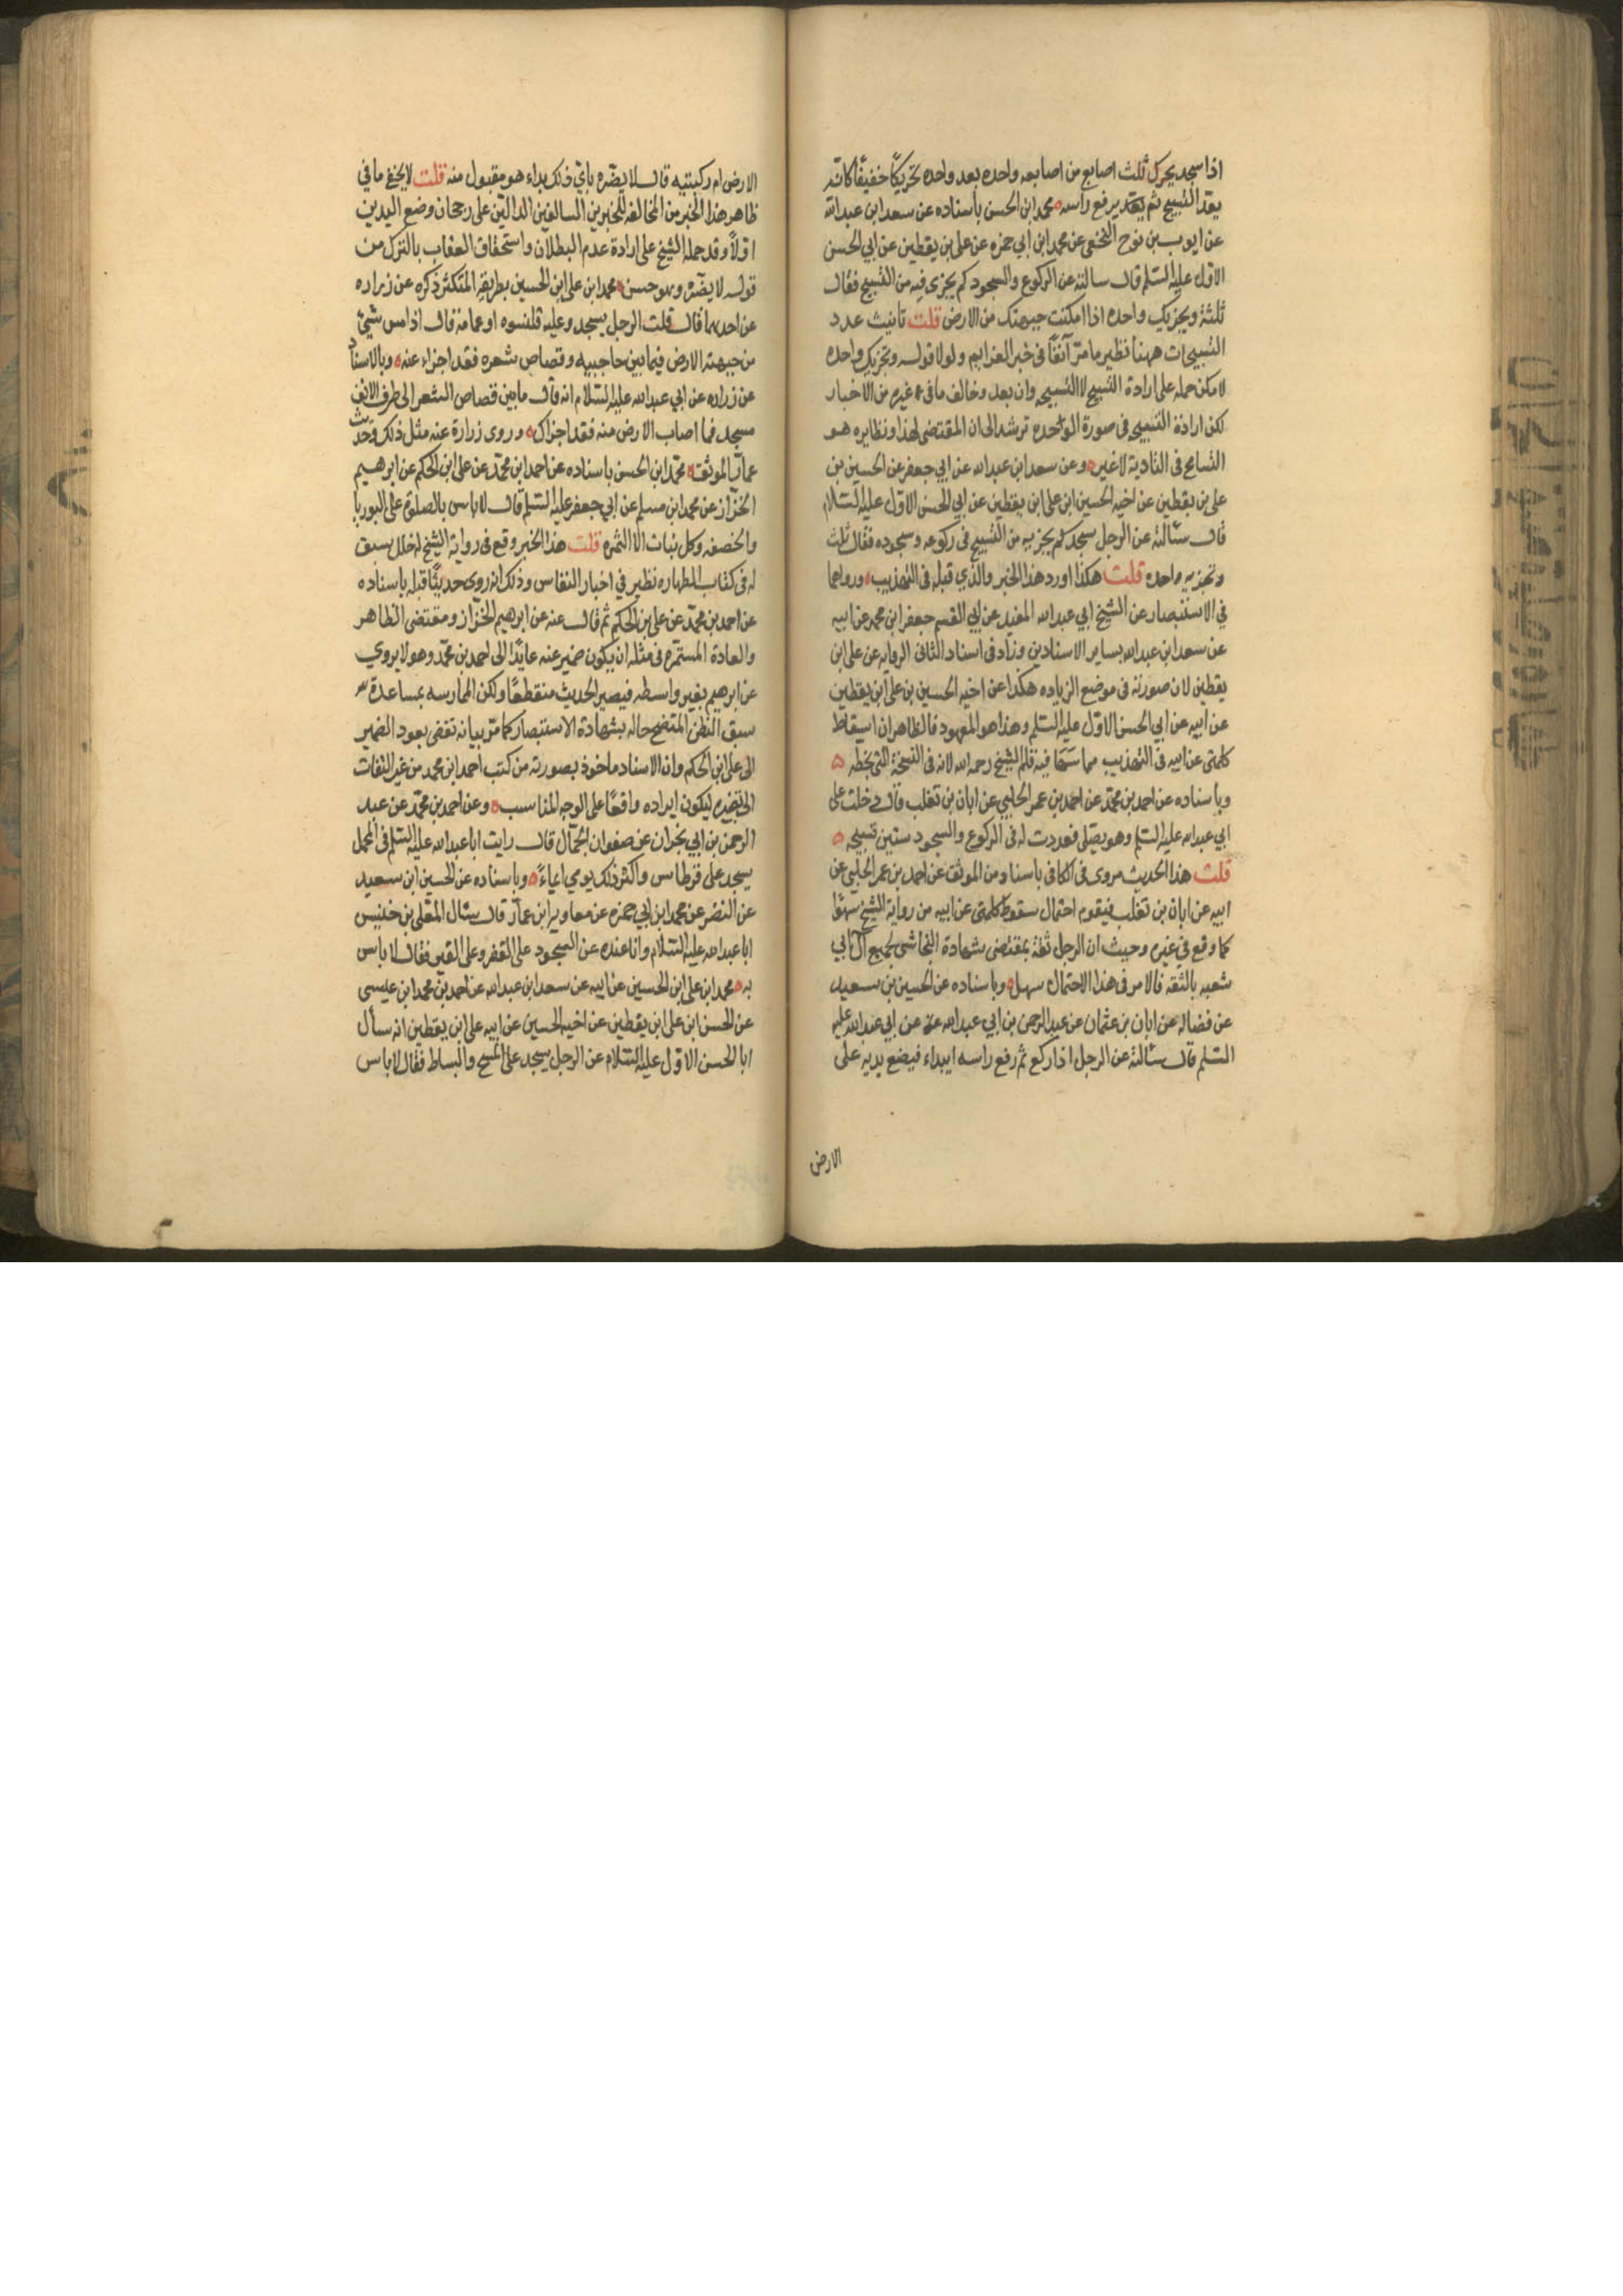 اذا سجد يحرك ثلث اصابع من اصابعه واحده بعد واحده تحريكًا خفيفًا كانه
يعد التسبيح ثم يعد يرفع راسه ٥ محمد ابن الحسن باسناده عن سعد ابن عبدالله
عن ايوب بن نوح النخعى عن محمد ابن أبي حمزه عن على بن يقطين عن ابي الحسن
الاول عليه السلم قال سالته عن الركوع والسجود كم يجزى فيه من التسبيح فقال
ثلثة ويجزيك واحده اذا امكنت جبهتك من الارض قلت تانيث عدد
التسبيحات ههنا نظير ما مر آنفًا فى خبر العزايم ولولا قوله وتجزيك واحده
لامكن حمله على ارادة التسبيح لا التسبيحه وان بعد وخالف ما فى غيره من الاخبار
لكن ارادة التسبيح فى صورة الواحده ترشد الى ان المقتضى لهذا ونظايره هو
التسامح فى التادية لا غير ٥ وعن سعد ابن عبدالله عن ابي جعفر عن الحسين بن
على بن يقطين عن اخيه الحسين ابن على ابن يقطين عن ابي الحسن الاول عليه السلام
قال سئالته عن الرجل سجد كم يجزيه من التسبيح فى ركوعه وسجوده فقال ثلث
وتجزيه واحده قلت هكذا اورد هذا الخبر والذي قبله فى التهذيب ٥ ورواهما
في الاستبصار عن الشيخ ابي عبدالله المفيد عن ابي القسم جعفر ابن محمد عن ابيه
عن سعد ابن عبدالله بساير الاسنادين وزاد فى اسناد الثانى الروايه عن على ابن
يقطين لان صورته فى موضع الزياده هكذا عن اخيه الحسين بن على ابن يقطين
عن ابيه عن ابي الحسن الاول عليه السلم وهذا هو المعهود فالظاهر ان اسقاط
كلمتى عن ابيه فى التهذيب مما سَهَا فيه قلم الشيخ رحمه الله لانه فى النسخة التى بخطه ٥
وباسناده عن احمد بن محمد عن احمد بن عمر الحلبي عن ابان بن تغلب قال دخلت على
ابي عبدالله عليه السلم وهو يصلى فعددت له فى الركوع والسجود ستين تسبيحه ٥
قلت هذا الحديث مروى فى الكافى باسناد من الموثق عن احمد بن عمر الحلبي عن
ابيه عن ابان بن تغلب فيقوم احتمال سقوط كلمتى عن ابيه من رواية الشيخ سهوًا
كما وقع فى غيره وحيث ان الرجل ثقة بمقتضى شهادة النجاشى لجميع آل ابي
شعبه بالثقه فالامر فى هذا الاحتمال سهل ٥ وباسناده عن الحسين بن سعيد
عن فضاله عن ابان بن عثمان عن عبدالرحمن بن ابي عبدالله عن ابي عبدالله عليه
السلم قال سئالته عن الرجل اذا ركع ثم رفع راسه ايبداء فيضع يديه على
الارض
الارض ام ركبتيه قال لا يضره باي ذلك بداء هو مقبول منه قلت لا يخفى ما في
ظاهر هذا الخبر من المخالفه للخبرين السالفين الدالين على رجحان وضع اليدين
اولًا وقد حمله الشيخ على ارادة عدم البطلان واستحقاق العقاب بالترك من
قوله لا يضره وهو حسن ٥ محمد ابن على ابن الحسين بطريقه المتكثر ذكره عن زراره
عن احدهما قال قلت الرجل يسجد وعليه قلنسوه او عمامة قال اذا مس شئ
من جبهته الارض فيما بين حاجبيه وقصاص شعره فقد اجزاء عنه ٥ وبالاسناد
عن زراره عن ابي عبدالله عليه السلام انه قال ما بين قصاص الشعر الى طرف الانف
مسجد فما اصاب الارض منه فقد اجزاك ٥ وروى زرارة عنه مثل ذلك وحديث
عمار الموثق ٥ محمد ابن الحسن باسناده عن احمد ابن محمد عن على ابن الحكم عن ابرهيم
الخزاز عن محمد ابن مسلم عن ابي جعفر عليه السلم قال لاباس بالصلوة على البوريا
والخصفه وكل نبات الا الثمره قلت هذا الخبر وقع فى رواية الشيخ له خلل سبق
له فى كتاب الطهاره نظير في اخبار النفاس وذلك انه روى حديثًا قبله باسناده
عن احمد بن محمد عن على بن الحكم ثم قال عنه عن ابرهيم الخزاز ومقتضى الظاهر
والعادة المستمره فى مثله ان يكون ضمير عنه عايدًا الى احمد بن محمد وهو لا يروي
عن ابرهيم بغير واسطه فيصير الحديث منقطعًا ولكن الممارسه بمساعدة
سبق النظر المتضح حاله بشهادة الاستبصار كما مر بيانه تقضى بعود الضمير
الى على ابن الحكم وان الاسناد ماخوذ بصورته من كتب احمد ابن محمد من غير التفات
الى تغييره ليكون ايراده واقعًا على الوجه المناسب ٥ وعن احمد بن محمد عن عبد
الرحمن بن ابي نجران عن صفوان الجمال قال رايت ابا عبدالله عليه السلم فى المحمل
يسجد على قرطاس واكثر ذلك يومي ايماءً ٥ وباسناده عن الحسين ابن سعيد
عن النضر عن محمد ابن ابي حمزه عن معاويه ابن عمار قال سئال المعلى بن خنيس
ابا عبدالله عليه السلام وانا عنده عن السجود على القفر وعلى القير فقال لاباس
به ٥ محمد ابن على ابن الحسين عن ابيه عن سعد ابن عبدالله عن احمد بن محمد ابن عيسى
عن الحسن ابن على ابن يقطين عن اخيه الحسين عن ابيه على ابن يقطين انه سأل
ابا الحسن الاول عليه السلام عن الرجل يسجد على المسح والبساط فقال لاباس